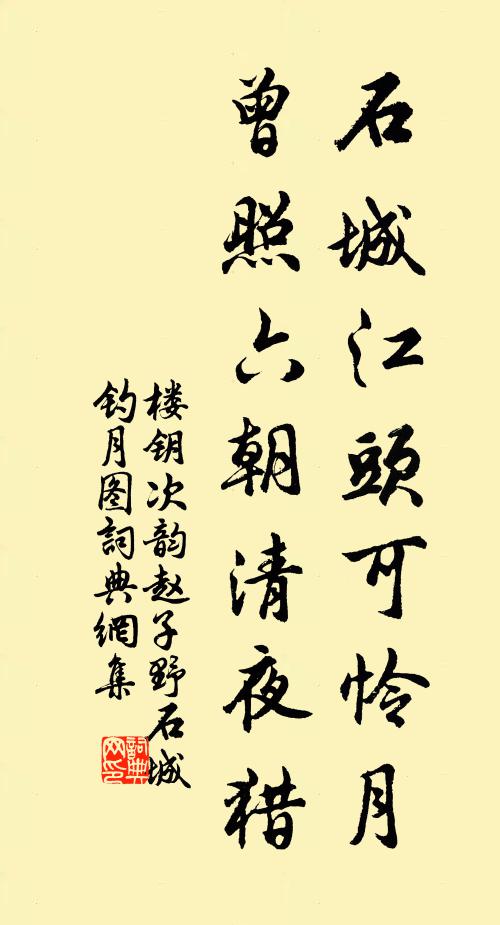 石城江頭可怜月
曾照六朝清夜猎
楼钥次韵赵子野石城
钓月图詞典網集
詞典网印